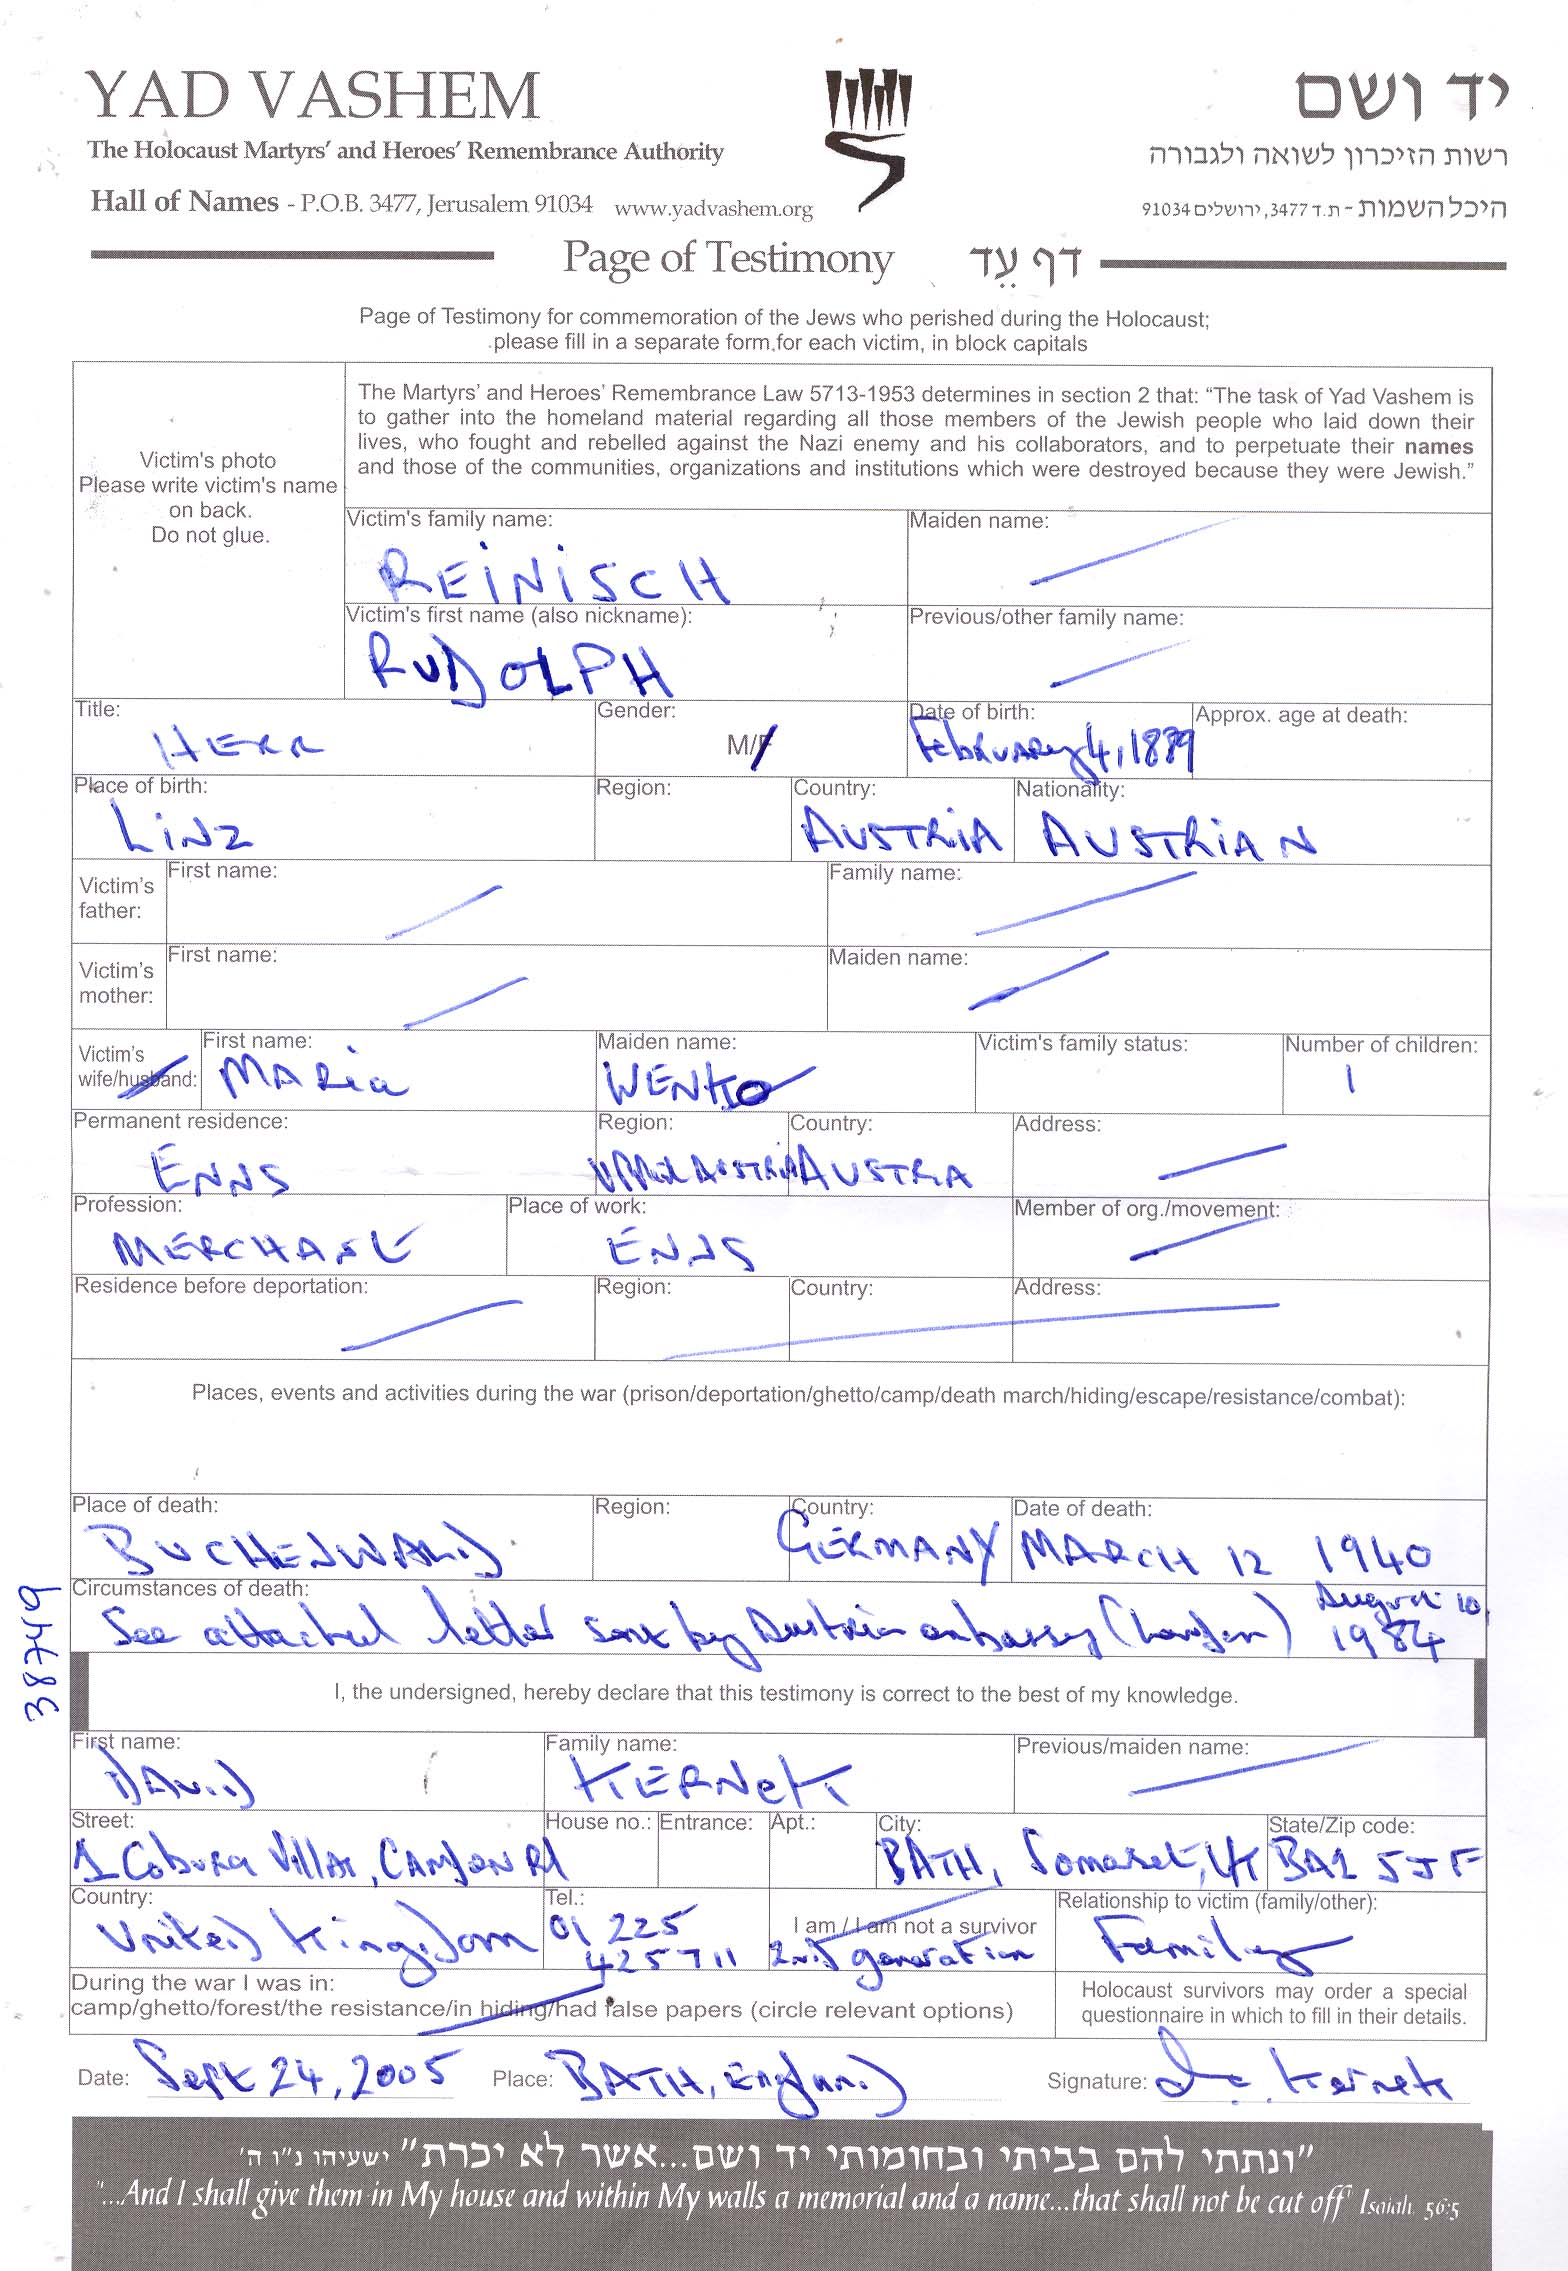 YAD VASHEM
יד ושם
The Holocaust Martyrs' and Heroes' Remembrance Authority
רשות הזיכרון לשואה ולגבורה
Hall of Names - P.O.B. 3477, Jerusalem 91034 www.yadvashem.org
היכל השמות - ת.ד 3477, ירושלים 91034
Page of Testimony דף עֵד
Page of Testimony for commemoration of the Jews who perished during the Holocaust;
please fill in a separate form for each victim, in block capitals
Victim's photo
Please write victim's name
on back.
Do not glue.
The Martyrs' and Heroes' Remembrance Law 5713-1953 determines in section 2 that: "The task of Yad Vashem is
to gather into the homeland material regarding all those members of the Jewish people who laid down their
lives, who fought and rebelled against the Nazi enemy and his collaborators, and to perpetuate their names
and those of the communities, organizations and institutions which were destroyed because they were Jewish."
Victim's family name: Maiden name:
REINISCH
Victim's first name (also nickname): Previous/other family name:
RUDOLPH
Title: Gender: Date of birth: Approx. age at death:
HERR M/F February 4, 1889
Place of birth: Region: Country: Nationality:
LINZ AUSTRIA AUSTRIAN
Victim's father: First name: Family name:
Victim's mother: First name: Maiden name:
Victim's wife/husband: First name: Maiden name: Victim's family status: Number of children:
MARIA 1
Permanent residence: Region: Country: Address:
ENNS UPPER AUSTRIA AUSTRA
Profession: Place of work: Member of org./movement:
MERCHANT ENNS
Residence before deportation: Region: Country: Address:
Places, events and activities during the war (prison/deportation/ghetto/camp/death march/hiding/escape/resistance/combat):
Place of death: Region: Country: Date of death:
BUCHENWALD GERMANY MARCH 12 1940
Circumstances of death:
See attached letter sent by Austrian embassy (London) August 10, 1984
38749
I, the undersigned, hereby declare that this testimony is correct to the best of my knowledge.
First name: Family name: Previous/maiden name:
DAVID KERNEK
Street: House no.: Entrance: Apt.: City: State/Zip code:
1 Coburg Villas, CAMDEN Rd BATH, Somerset, UK BA1 5JF
Country: Tel.: I am / I am not a survivor Relationship to victim (family/other):
United Kingdom 01225 425711 2nd generation Family
During the war I was in:
camp/ghetto/forest/the resistance/in hiding/had false papers (circle relevant options)
Holocaust survivors may order a special
questionnaire in which to fill in their details.
Date: Sept 24, 2005 Place: BATH, England Signature: Kernek
"ונתתי להם בביתי ובחומותי יד ושם...אשר לא יכרת" ישעיהו נ"ו ה'
"...And I shall give them in My house and within My walls a memorial and a name...that shall not be cut off" Isaiah 56:5